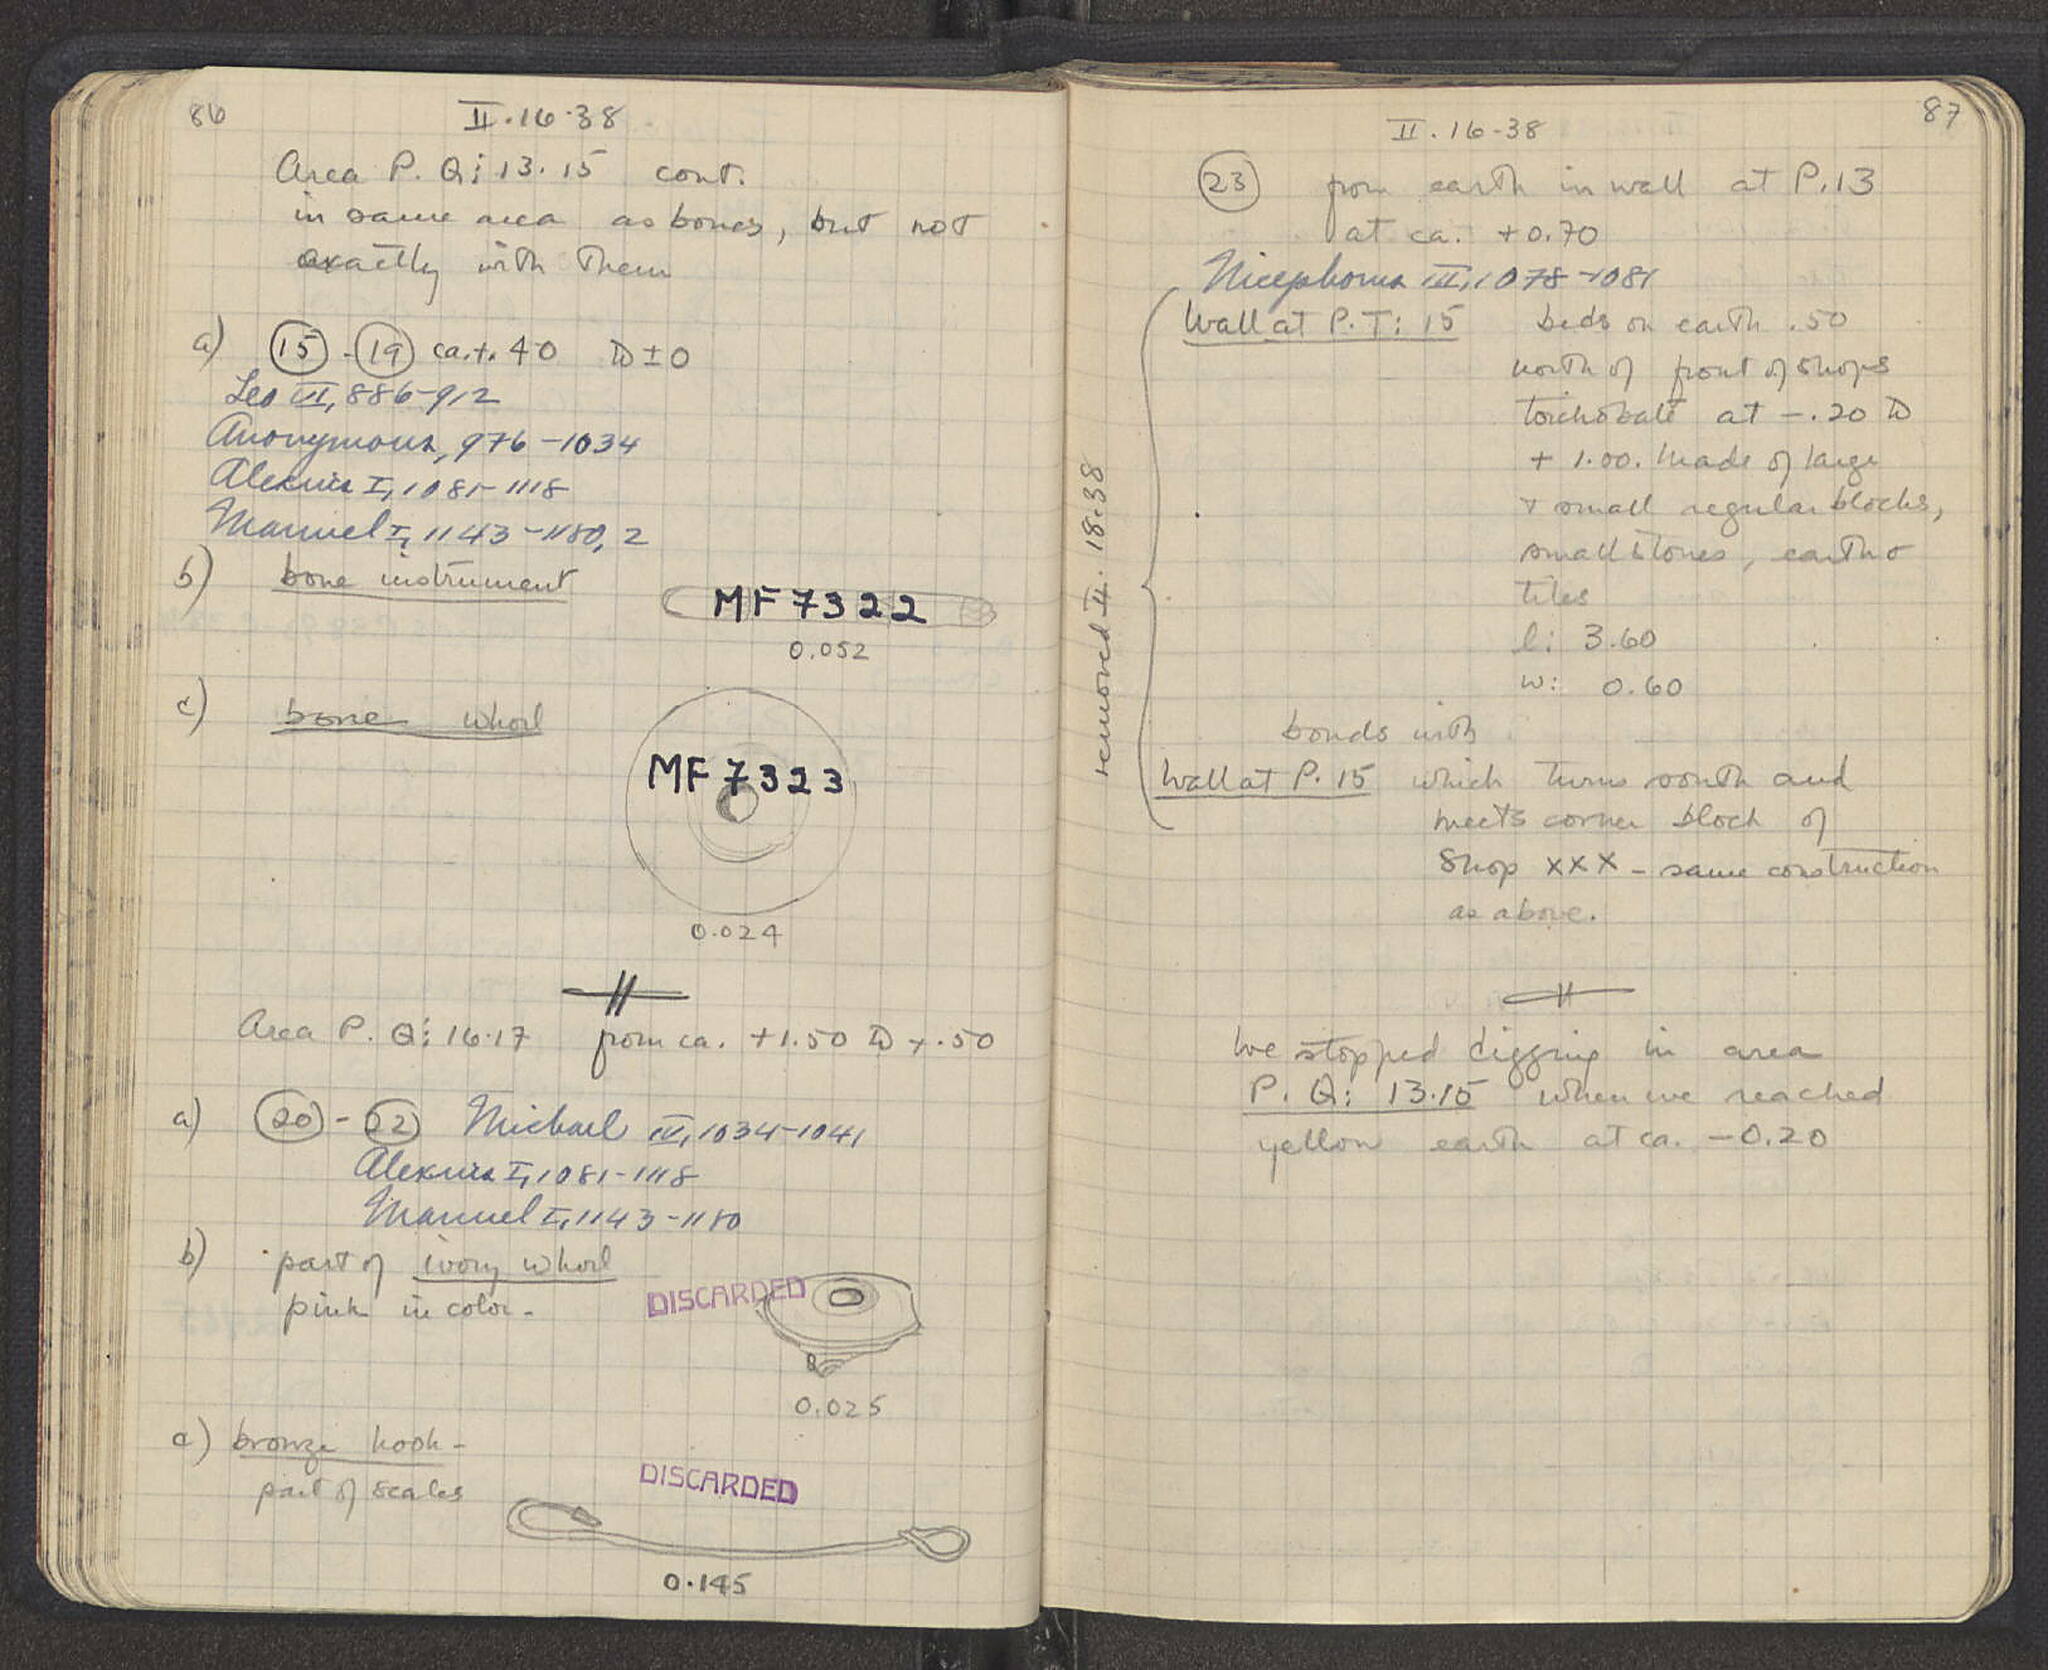 86
II.16.38
Area P. Q: 13.15 cont.
in same area as bones, but not
exactly with them
a) 15 - 19 ca. +.40 to ±0
Leo VI, 886-912
Anonymous, 976-1034
Alexius I, 1081-1118
Manuel I, 1143-1180, 2
b) bone instrument
MF 7322
0.052
c) bone whorl
MF 7323
0.024
Area P. Q: 16.17 from ca. +1.50 to +.50
a) 20 - 22 Michael IV, 1034-1041
Alexius I, 1081-1118
Manuel I, 1143-1180
b) part of ivory whorl
pink in color-
DISCARDED
0.025
c) bronze hook-
part of scales
DISCARDED
0.145
87
II.16-38
23 from earth in wall at P.13
at ca. +0.70
Nicephorus III, 1078-1081
removed II.18.38
Wall at P.T: 15 beds on earth .50
north of front of shops
toichobate at -.20 to
+1.00. Made of large
+ small regular blocks,
small stones, earth +
tiles
l: 3.60
w: 0.60
bonds with
Wall at P. 15 which turns south and
meets corner block of
Shop XXX - same construction
as above.
We stopped digging in area
P. Q: 13.15 when we reached
yellow earth at ca. -0.20